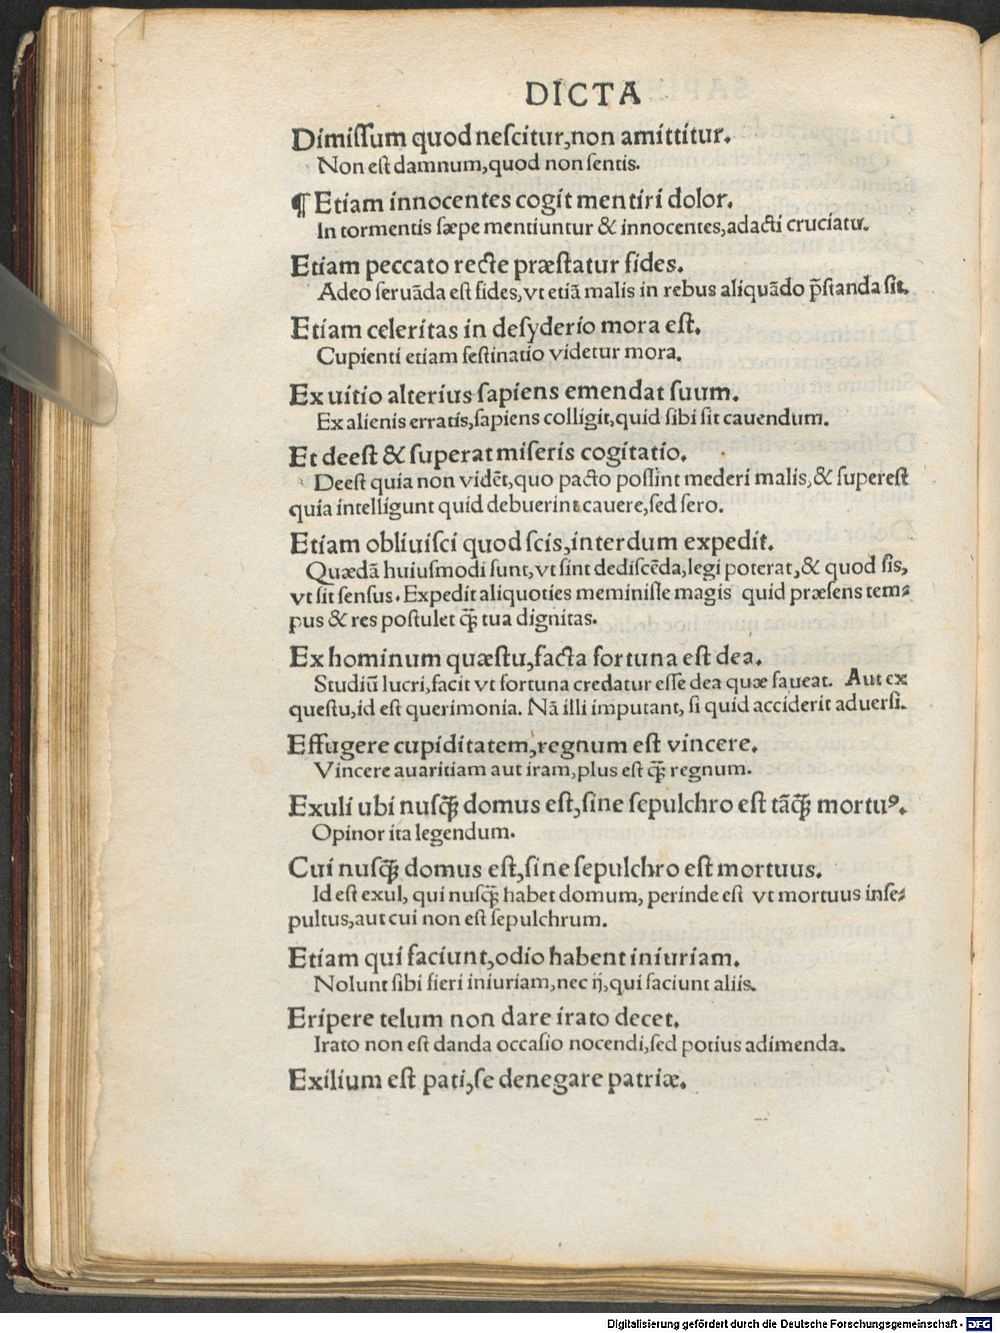 DICTA
Dimiſſum quod neſcitur,non amittitur.
Non eſt damnum,quod non ſentis.
¶ Etiam innocentes cogit mentiri dolor.
In tormentis ſæpe mentiuntur & innocentes,adacti cruciatu.
Etiam peccato recte præſtatur fides.
Adeo ſeruãda eſt fides,vt etiã malis in rebus aliquãdo p̃ſtanda ſit.
Etiam celeritas in deſyderio mora eſt.
Cupienti etiam feſtinatio videtur mora.
Ex uitio alterius ſapiens emendat ſuum.
Ex alienis erratis,ſapiens colligit,quid ſibi ſit cauendum.
Et deeſt & ſuperat miſeris cogitatio.
Deeſt quia non vidẽt,quo pacto poſſint mederi malis,& ſupereſt
quia intelligunt quid debuerint cauere,ſed ſero.
Etiam obliuiſci quod ſcis,interdum expedit.
Quædã huiuſmodi ſunt,vt ſint dediſcẽda,legi poterat,& quod ſis,
vt ſit ſenſus. Expedit aliquoties meminiſſe magis quid præſens tem⸗
pus & res poſtulet q̃ꝫ tua dignitas.
Ex hominum quæſtu,facta fortuna eſt dea.
Studiũ lucri,facit vt fortuna credatur eſſe dea quæ faueat. Aut ex
queſtu,id eſt querimonia. Nã illi imputant, ſi quid acciderit aduerſi.
Effugere cupiditatem,regnum eſt vincere.
Vincere auaritiam aut iram,plus eſt q̃ꝫ regnum.
Exuli ubi nuſq̃ꝫ domus eſt,ſine ſepulchro eſt tãq̃ꝫ mortuꝰ.
Opinor ita legendum.
Cui nuſq̃ꝫ domus eſt,ſine ſepulchro eſt mortuus.
Id eſt exul, qui nuſq̃ꝫ habet domum, perinde eſt vt mortuus inſe⸗
pultus,aut cui non eſt ſepulchrum.
Etiam qui faciunt,odio habent iniuriam.
Nolunt ſibi fieri iniuriam,nec ij,qui faciunt aliis.
Eripere telum non dare irato decet.
Irato non eſt danda occaſio nocendi,ſed potius adimenda.
Exilium eſt pati,ſe denegare patriæ.
Digitalisierung gefördert durch die Deutsche Forschungsgemeinschaft - DFG